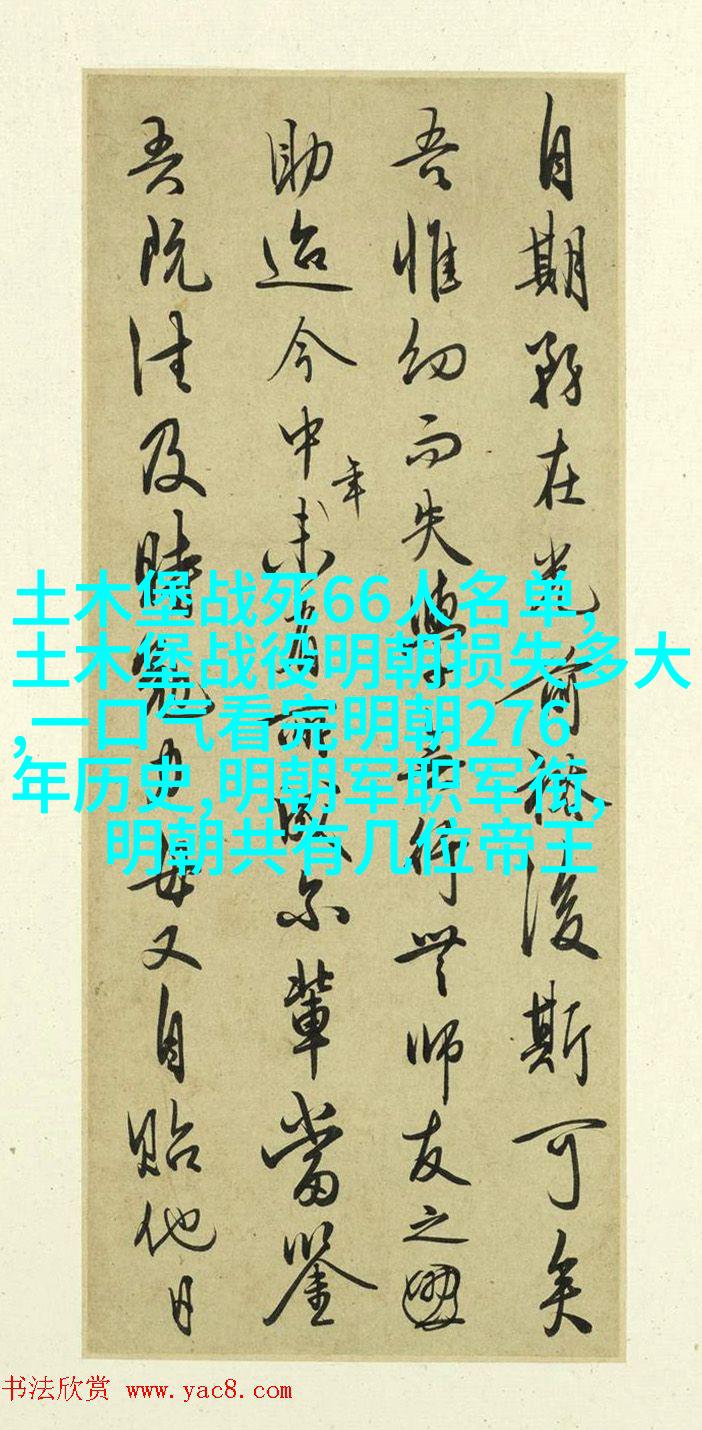 自期務在光前裕後斯可矣
吾惟幼而失學無行無師友之
助迨今中年未有所成尔輩當鑒
吾既往及時勉力毋又自貽他日
土木堡战死66人名单,
土木堡战役明朝损失多大
,一口气看完明朝276
年历史,明朝军职军衔,
明朝共有几位帝王
书法欣赏 www.yac8.com